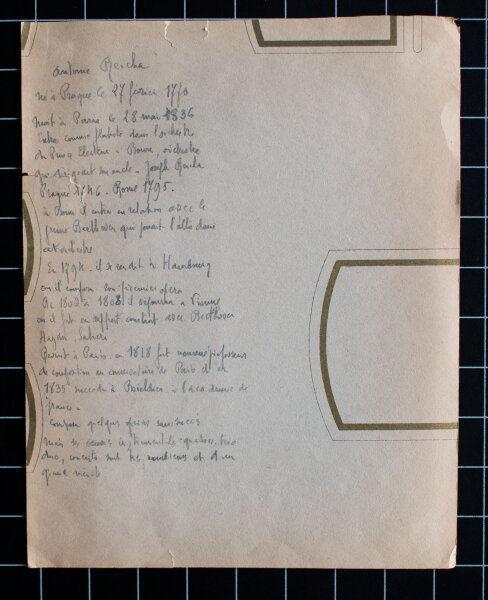 Antoine Reicha
né à Prague le 27 février 1770
mort à Paris le 28 mai 1836
Entra comme flutiste dans l'orchestre
du Prince Electeur à Bonn, orchestre
qui dirigeait son oncle - Joseph Reicha
Prague 1746 - Bonn 1795.
à Bonn il entra en relation avec le
jeune Beethoven qui jouait l'alto dans
cet orchestre
En 1794 il se rendit à Hambourg
où il composa son premier opéra
De 1802 à 1808 il séjourna à Vienne
où il fut en rapport constant avec Beethoven
Haydn, Salieri
Revint à Paris en 1818 fut nommé professeur
de composition au conservatoire de Paris et en
1835 succéda à Boieldieu à l'académie de
france -
composa quelques opéras
mais ses œuvres quatuors, trio
duo, concerto sont très nombreux et d'un
grand